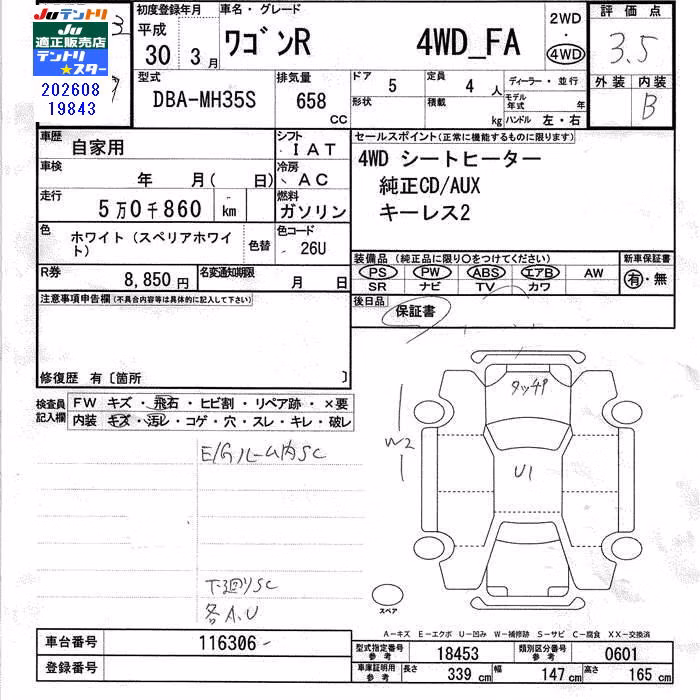 Juテントリ
Ju
適正販売店
テントリ
★スター
202608
19843
初度登録年月
平成
30年 3月
車名・グレード
ワゴンR 4WD_FA
2WD
・
4WD
評価点
3.5
外装 内装
B
型式
DBA-MH35S
排気量
658
CC
ドア 5
形状
定員 4 人
積載 kg
ディーラー・並行
モデル年式 年
ハンドル 左・右
車歴
自家用
シフト
IAT
車検
年 月( 日)
冷房
AC
走行
5万0千860 km
燃料
ガソリン
色
ホワイト(スペリアホワイト)
色替
色コード
26U
R券
8,850円
名変通知期限
月 日
セールスポイント(正常に機能するものに限ります)
4WD シートヒーター
純正CD/AUX
キーレス2
装備品(純正品に限り〇をつけてください)
PS PW ABS エアB AW
SR ナビ TV カワ
新車保証書
有・無
後日品
保証書
注意事項申告欄(不具合内容等は具体的に記入して下さい)
修復歴 有〔箇所 〕
検査員記入欄
FW キズ・飛石・ヒビ割・リペア跡・×要
内装 キズ・汚レ・コゲ・穴・スレ・キレ・破レ
E/Gルーム内SC
下廻りSC
各A.U
タッチP
W2
U1
スペア
A-キズ E-エクボ U-凹み W-補修跡 S-サビ C-腐食 XX-交換済
車台番号
116306
登録番号
型式指定番号参考
18453
類別区分番号参考
0601
車庫証明用参考
長さ 339 cm
幅 147 cm
高さ 165 cm